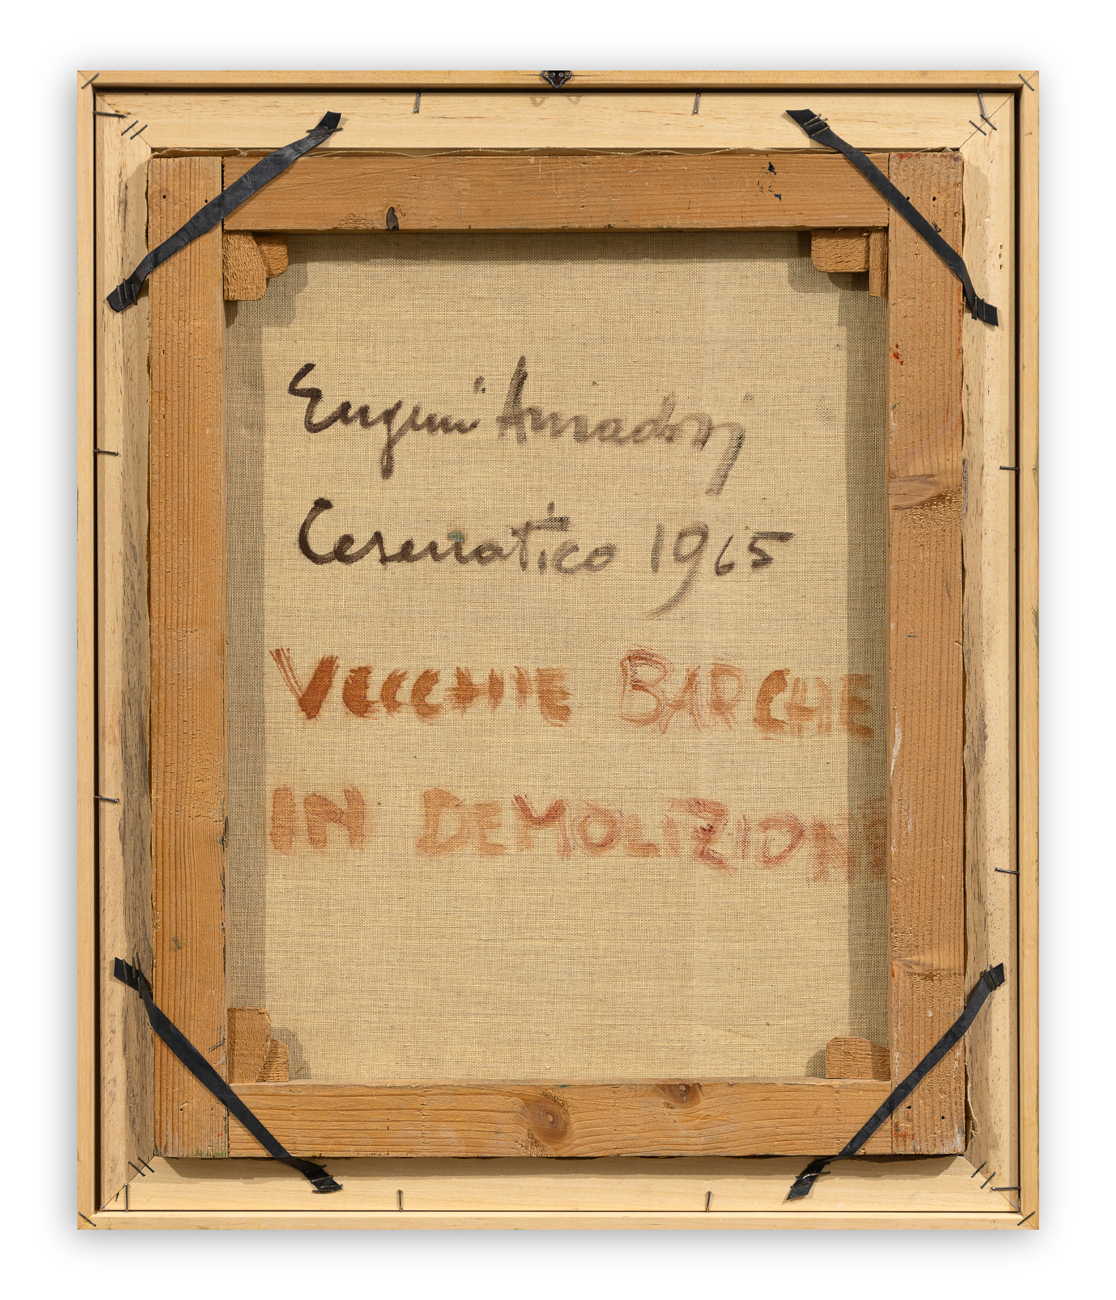 Eugenio Amadori
Cesenatico 1965
VECCHIE BARCHE
IN DEMOLIZIONE